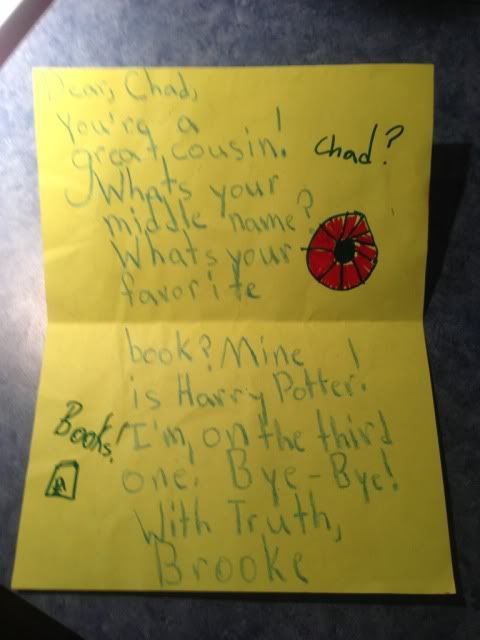 Dear, Chad,
You're a
great cousin!
Chad?
Whats your
middle name?
Whats your
favorite
book? Mine
is Harry Potter.
Books!
I'm, on the third
one. Bye-Bye!
With Truth,
Brooke